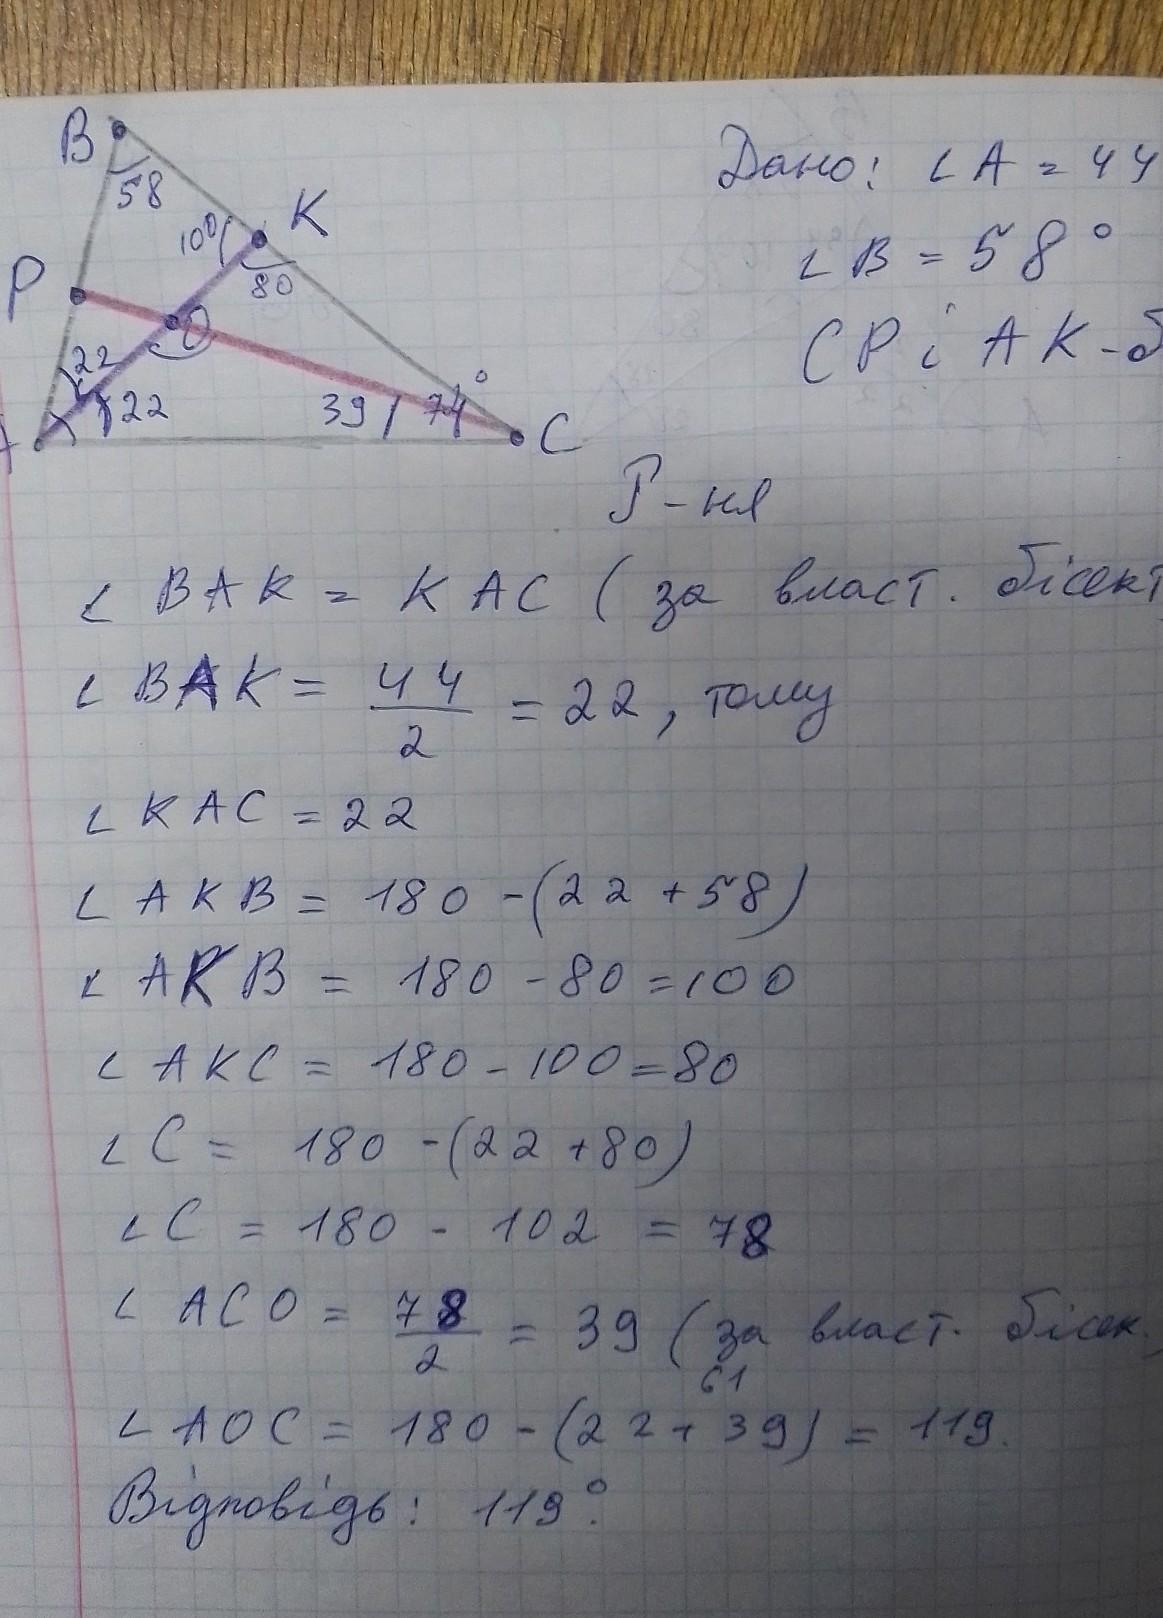 B
58
K
100
80
P
O
22
22
39
74°
C
Дано: ∠A = 44
∠B = 58°
CP і AK - б
Р-ня
∠ BAK = KAC (за власт. бісект
∠ BAK = 44/2 = 22, тому
∠ KAC = 22
∠ AKB = 180 - (22 + 58)
∠ AKB = 180 - 80 = 100
∠ AKC = 180 - 100 = 80
∠ C = 180 - (22 + 80)
∠ C = 180 - 102 = 78
∠ ACO = 78/2 = 39 (за власт. бісек.
61
∠ AOC = 180 - (22 + 39) = 119.
Відповідь: 119°.